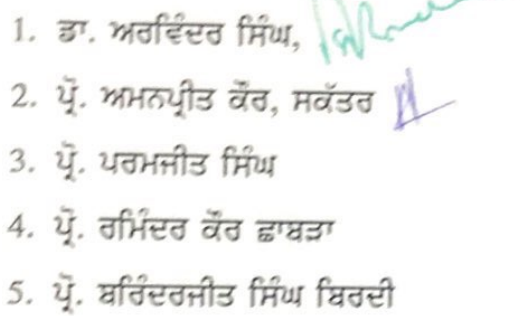 1. ਡਾ. ਅਰਵਿੰਦਰ ਸਿੰਘ,
2. ਪ੍ਰੋ. ਅਮਨਪ੍ਰੀਤ ਕੌਰ, ਸਕੱਤਰ
3. ਪ੍ਰੋ. ਪਰਮਜੀਤ ਸਿੰਘ
4. ਪ੍ਰੋ. ਰਮਿੰਦਰ ਕੌਰ ਛਾਬੜਾ
5. ਪ੍ਰੋ. ਬਰਿੰਦਰਜੀਤ ਸਿੰਘ ਬਿਰਦੀ